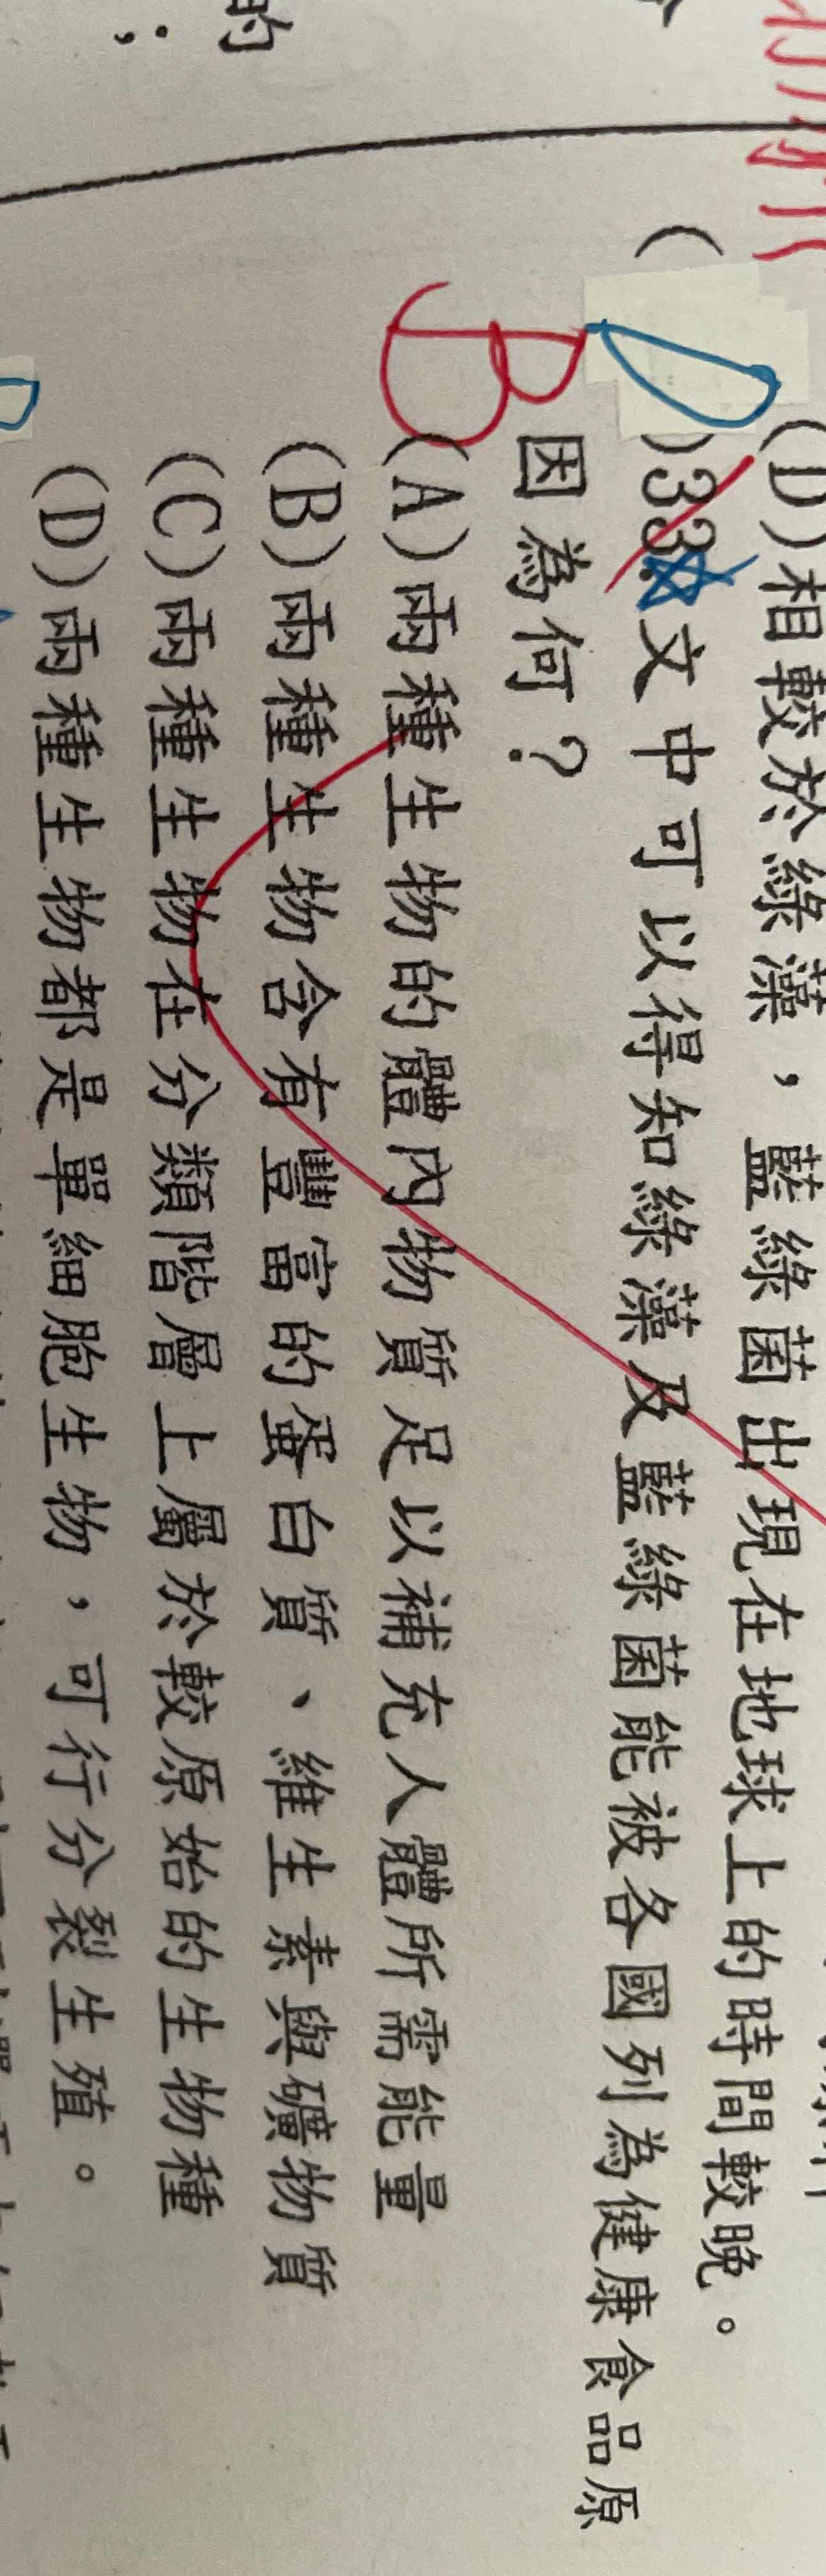 的
;
(D)相較於綠藻，藍綠菌出現在地球上的時間較晚。
( D )33.文中可以得知綠藻及藍綠菌能被各國列為健康食品原
因為何？
B
(A)兩種生物的體內物質足以補充人體所需能量
(B)兩種生物含有豐富的蛋白質、維生素與礦物質
(C)兩種生物在分類階層上屬於較原始的生物種
(D)兩種生物都是單細胞生物，可行分裂生殖。